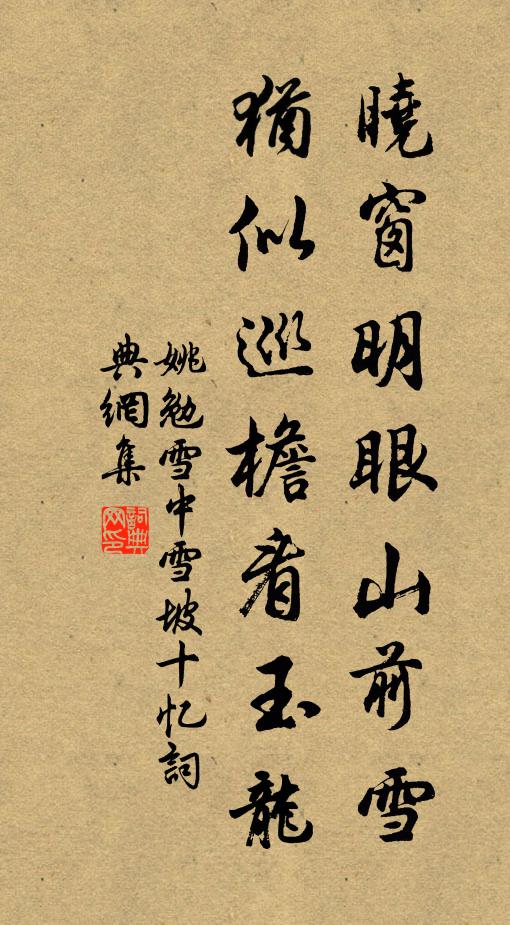 曉窗明眼山前雪
猶似巡檐看玉龍
姚勉雪中雪坡十忆詞
典網集
詞典網印